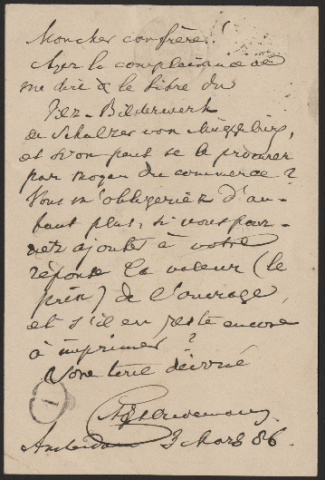 Mon cher confrère!
Ayez la complaisance de
me dire le titre du
Pilz-Bilderwerk
de Schulzer von Müggenburg,
et si on peut se le procurer
par moyen du commerce?
Vous m'obligeriez d'au-
tant plus, si vous pour-
riez ajouter à votre
réponse la valeur (le
prix) de l'ouvrage,
et s'il en reste encore
à imprimer?
Votre tout dévoué
Oudemans
Amsterdam 3 Mars 86.
1